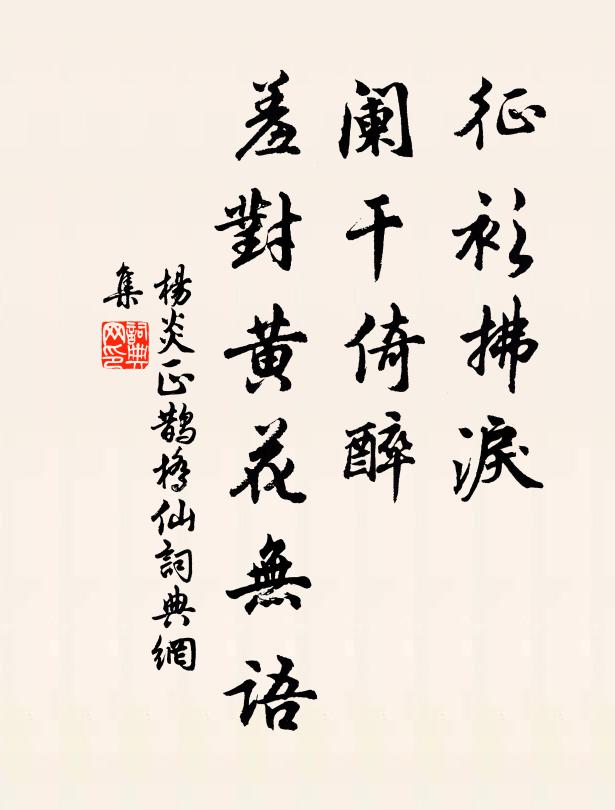 征衫拂淚
阑干倚醉
羞對黄花無語
楊炎正鵲橋仙詞典網
集
詞典
网印